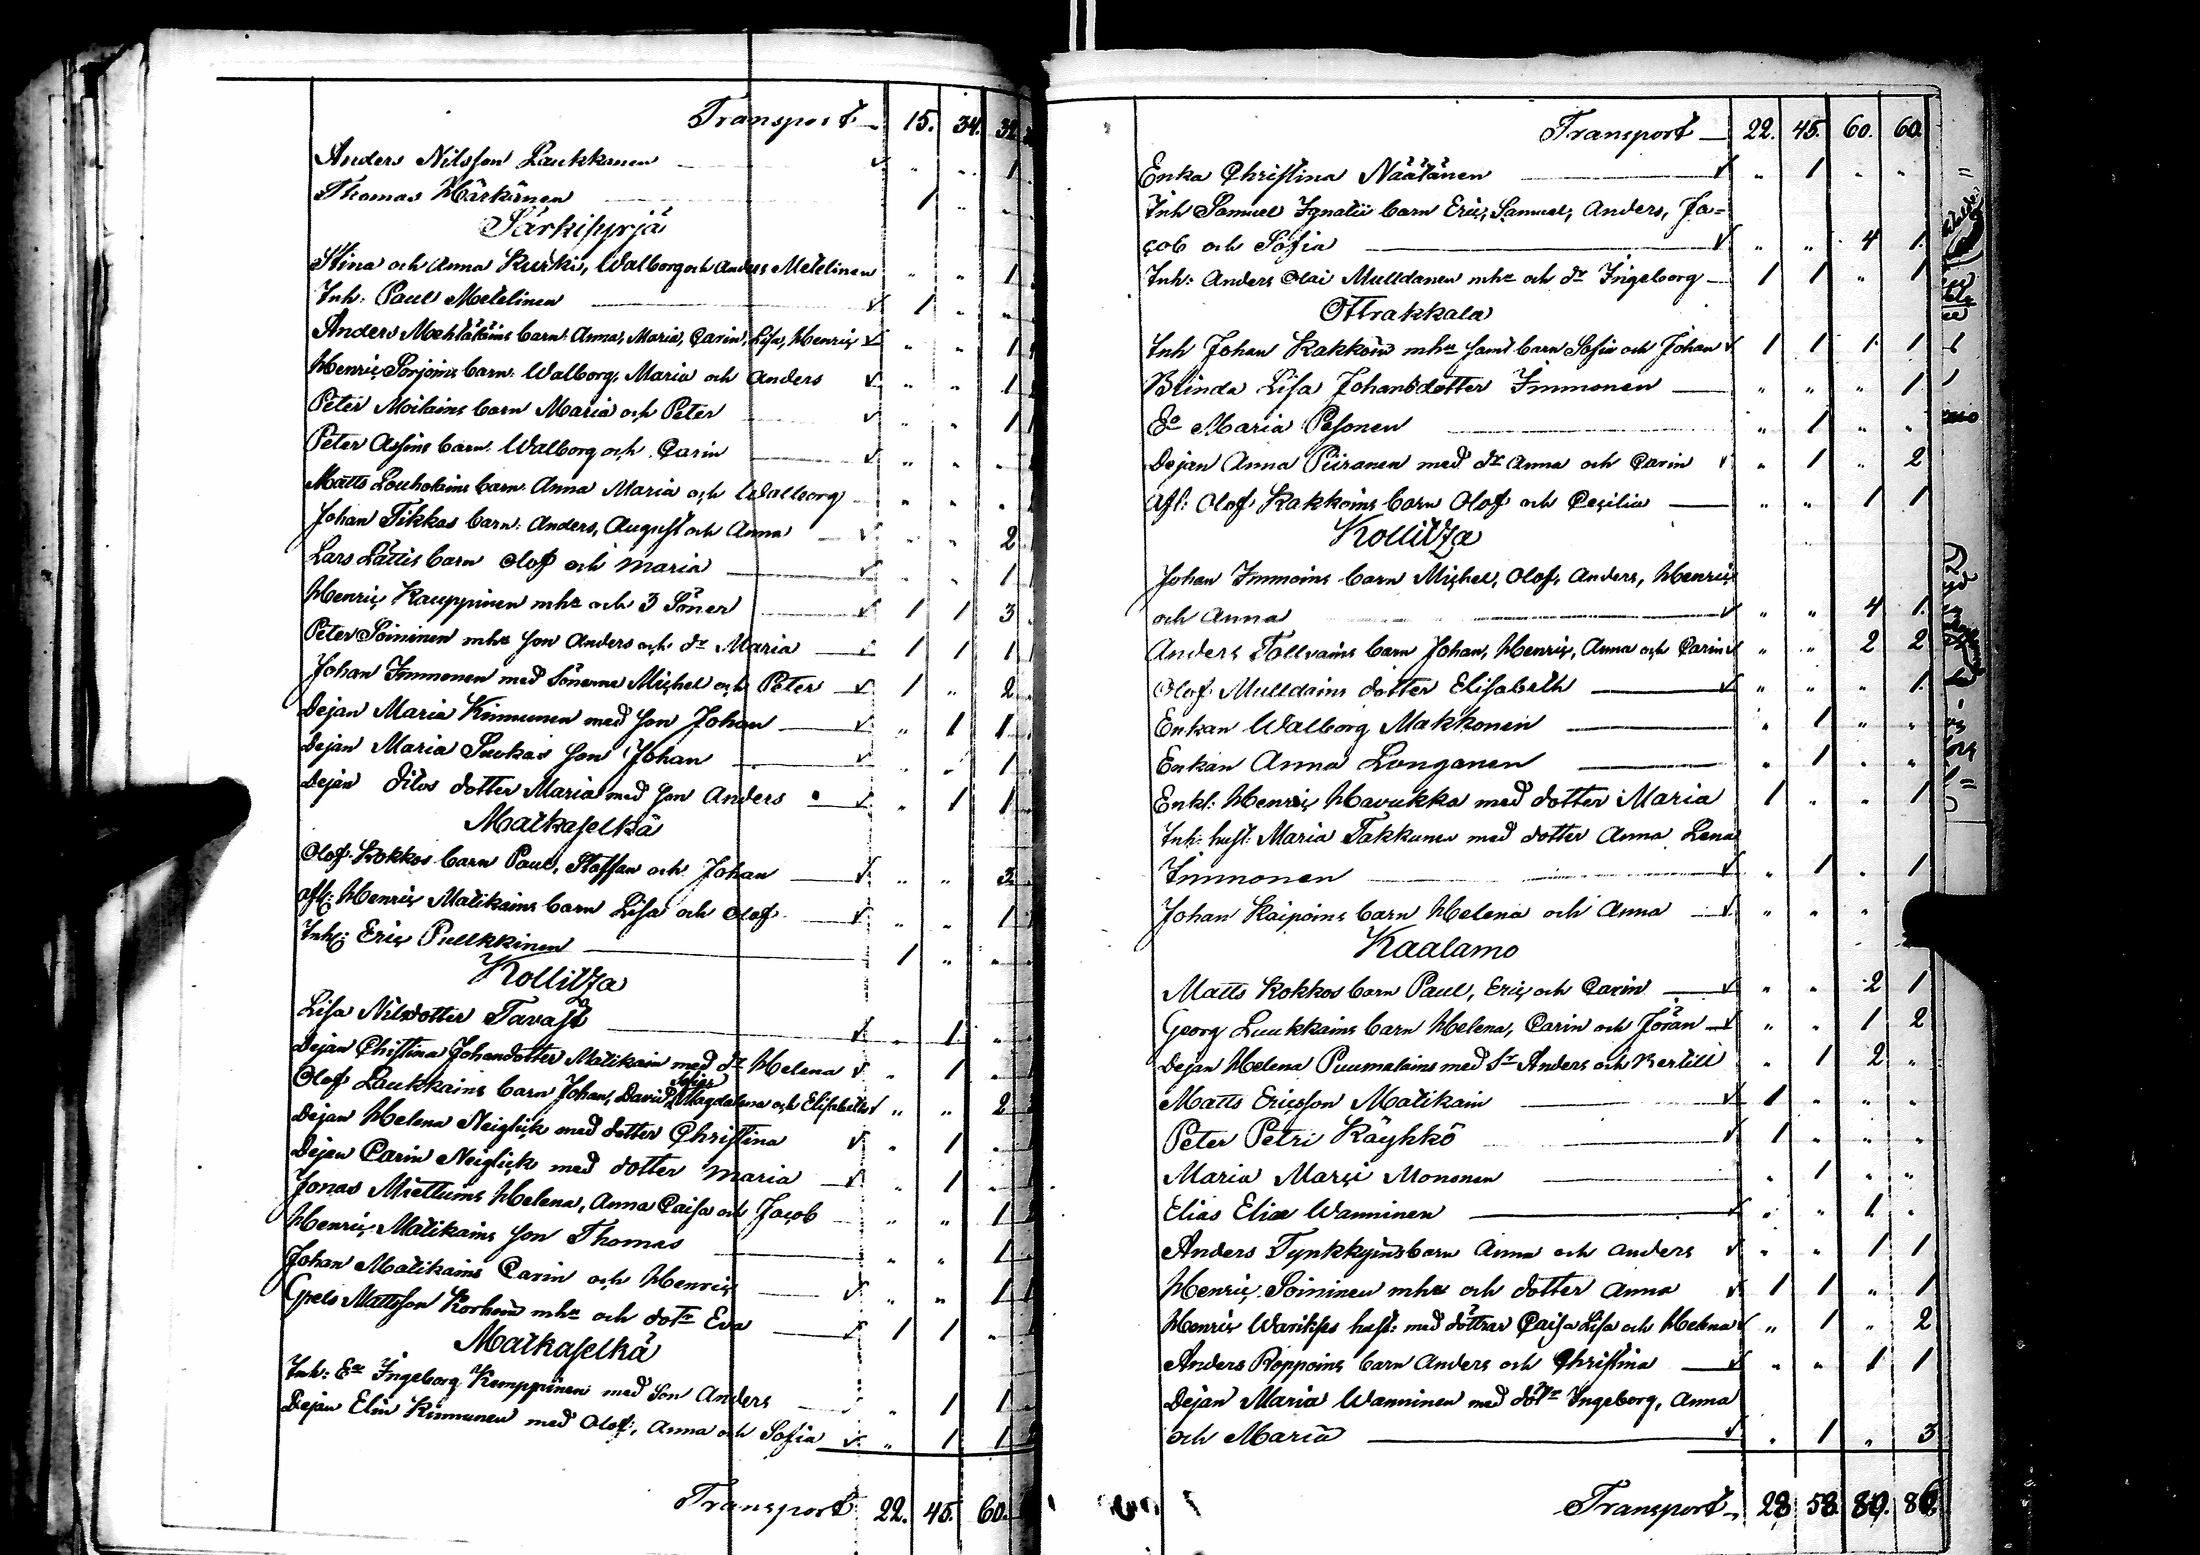 Transport 15. 34. 32.
Anders Nilsson Laukkanen √ " " 1
Thomas Härkönen 1 " "
Särkisyrjä
Stina och Anna Kurki, Walborg och Anders Metelinen " " 1
Inh: Paul Metelinen √ 1 " "
Anders Mehtätäins barn: Anna, Maria, Carin, Lisa, Henric √ " " 1
Henric Sorjoins barn: Walborg, Maria och Anders √ " " 1
Peter Moilains barn Maria och Peter √ " " 1
Peter Assins barn: Walborg och Carin √ " " "
Matts Louholains barn: Anna Maria och Walborg " " "
Johan Tikkas barn: Anders, August och Anna √ " " 2
Lars Lättis barn Olof och Maria √ " " 1
Henric Kauppinen mhu och 3 Söner √ 1 1 3
Peter Soininen mhu son Anders och dr Maria √ 1 1 1
Johan Immonen med Sönerne Michel och Peter √ 1 " 2
Dejan Maria Kinnunen med son Johan √ " 1 1
Dejan Maria Sutkas son Johan √ " " 1
Dejan ditos dotter Maria med son Anders √ " 1 1
Matkaselkä
Olof Kokkos barn Paul, Staffan och Johan √ " " 3
Afl: Henric Matikains barn Lisa och Olof √ " " 1
Inh: Eric Pullkkinen 1 " "
Kollitza
Lisa Nilsdotter Tavast √ " 1 "
Dejan Christina Johansdotter Matikain med dr Helena √ " 1 "
Olof Laukkains barn Johan, David, Magdalena och Elisabeth √ " " 2
Dejan Helena Neiglick med dotter Christina √ " 1 "
Dejan Carin Neiglick med dotter Maria √ " 1 "
Jonas Miettuins Helena, Anna Caisa och Jacob " " 1
Henric Matikains son Thomas " " 1
Johan Matikains Carin och Henric √ " " 1
Grels Mattsson Korhoin mhu och dotr Eva √ 1 1 "
Matkaselkä
Inh: Ea Ingeborg Kemppinen med son Anders " 1 1
Dejan Elin Kinnunen med Olof, Anna och Sofia √ " 1 1
Transport 22. 45. 60.
Transport 22. 45. 60. 60.
Enka Christina Näätänen √ " 1 " "
Inh Samuel Ignatii barn Eric, Samuel, Anders, Ja=
cob och Sofia √ " " 4 1.
Inh: Anders Olai Mulldanen mhu och dr Ingeborg 1 1 " 1
Ottrakkala
Inh Johan Kakkoin mhu samt barn Sofia och Johan √ 1 1 1 1
Blinda Lisa Johansdotter Immonen " " " 1.
Ea Maria Pesonen " 1 " "
Dejan Anna Piiranen med dr Anna och Carin √ " 1 " 2
Afl: Olof Kakkoins barn Olof och Cecilia " " 1 1
Kollitza
Johan Immoins barn Michel, Olof, Anders, Henric
och Anna √ " " 4 1.
Anders Tollvains barn Johan, Henric, Anna och Carin √ " " 2 2
Olof Mulldains dotter Elisabeth √ " " " 1.
Enkan Walborg Makkonen " 1 " "
Enkan Anna Longanen " 1 " "
Enkl: Henric Havukka med dotter Maria 1 " " 1
Inh: hust: Maria Takkunen med dotter Anna Lena
Immonen √ " 1 " 1
Johan Kaipoins barn Helena och Anna √ " " "
Kaalamo
Matts Kokkos barn Paul, Eric och Carin √ " " 2 1
Georg Luukkains barn Helena, Carin och Jöran √ " " 1 2
Dejan Helena Puumalains med Sr Anders och Bertill " 1 2 "
Matts Ericsson Matikain √ 1 " " "
Peter Petri Käyhkö √ 1 " " "
Maria Marci Mononen " 1 " "
Elias Eliæ Wanninen √ " " 1 "
Anders Tynkkyins barn Anna och Anders √ " " 1 1
Henric Soininen mhu och dotter Anna √ 1 1 " 1
Henric Wariksis hust: med döttrar Caisa Lisa och Helena √ " 1 " 2
Anders Roppoins barn Anders och Christina √ " " 1 1
Dejan Maria Wanninen med dötr Ingeborg, Anna
och Maria √ " 1 " 3
Transport 28 58. 80. 86.